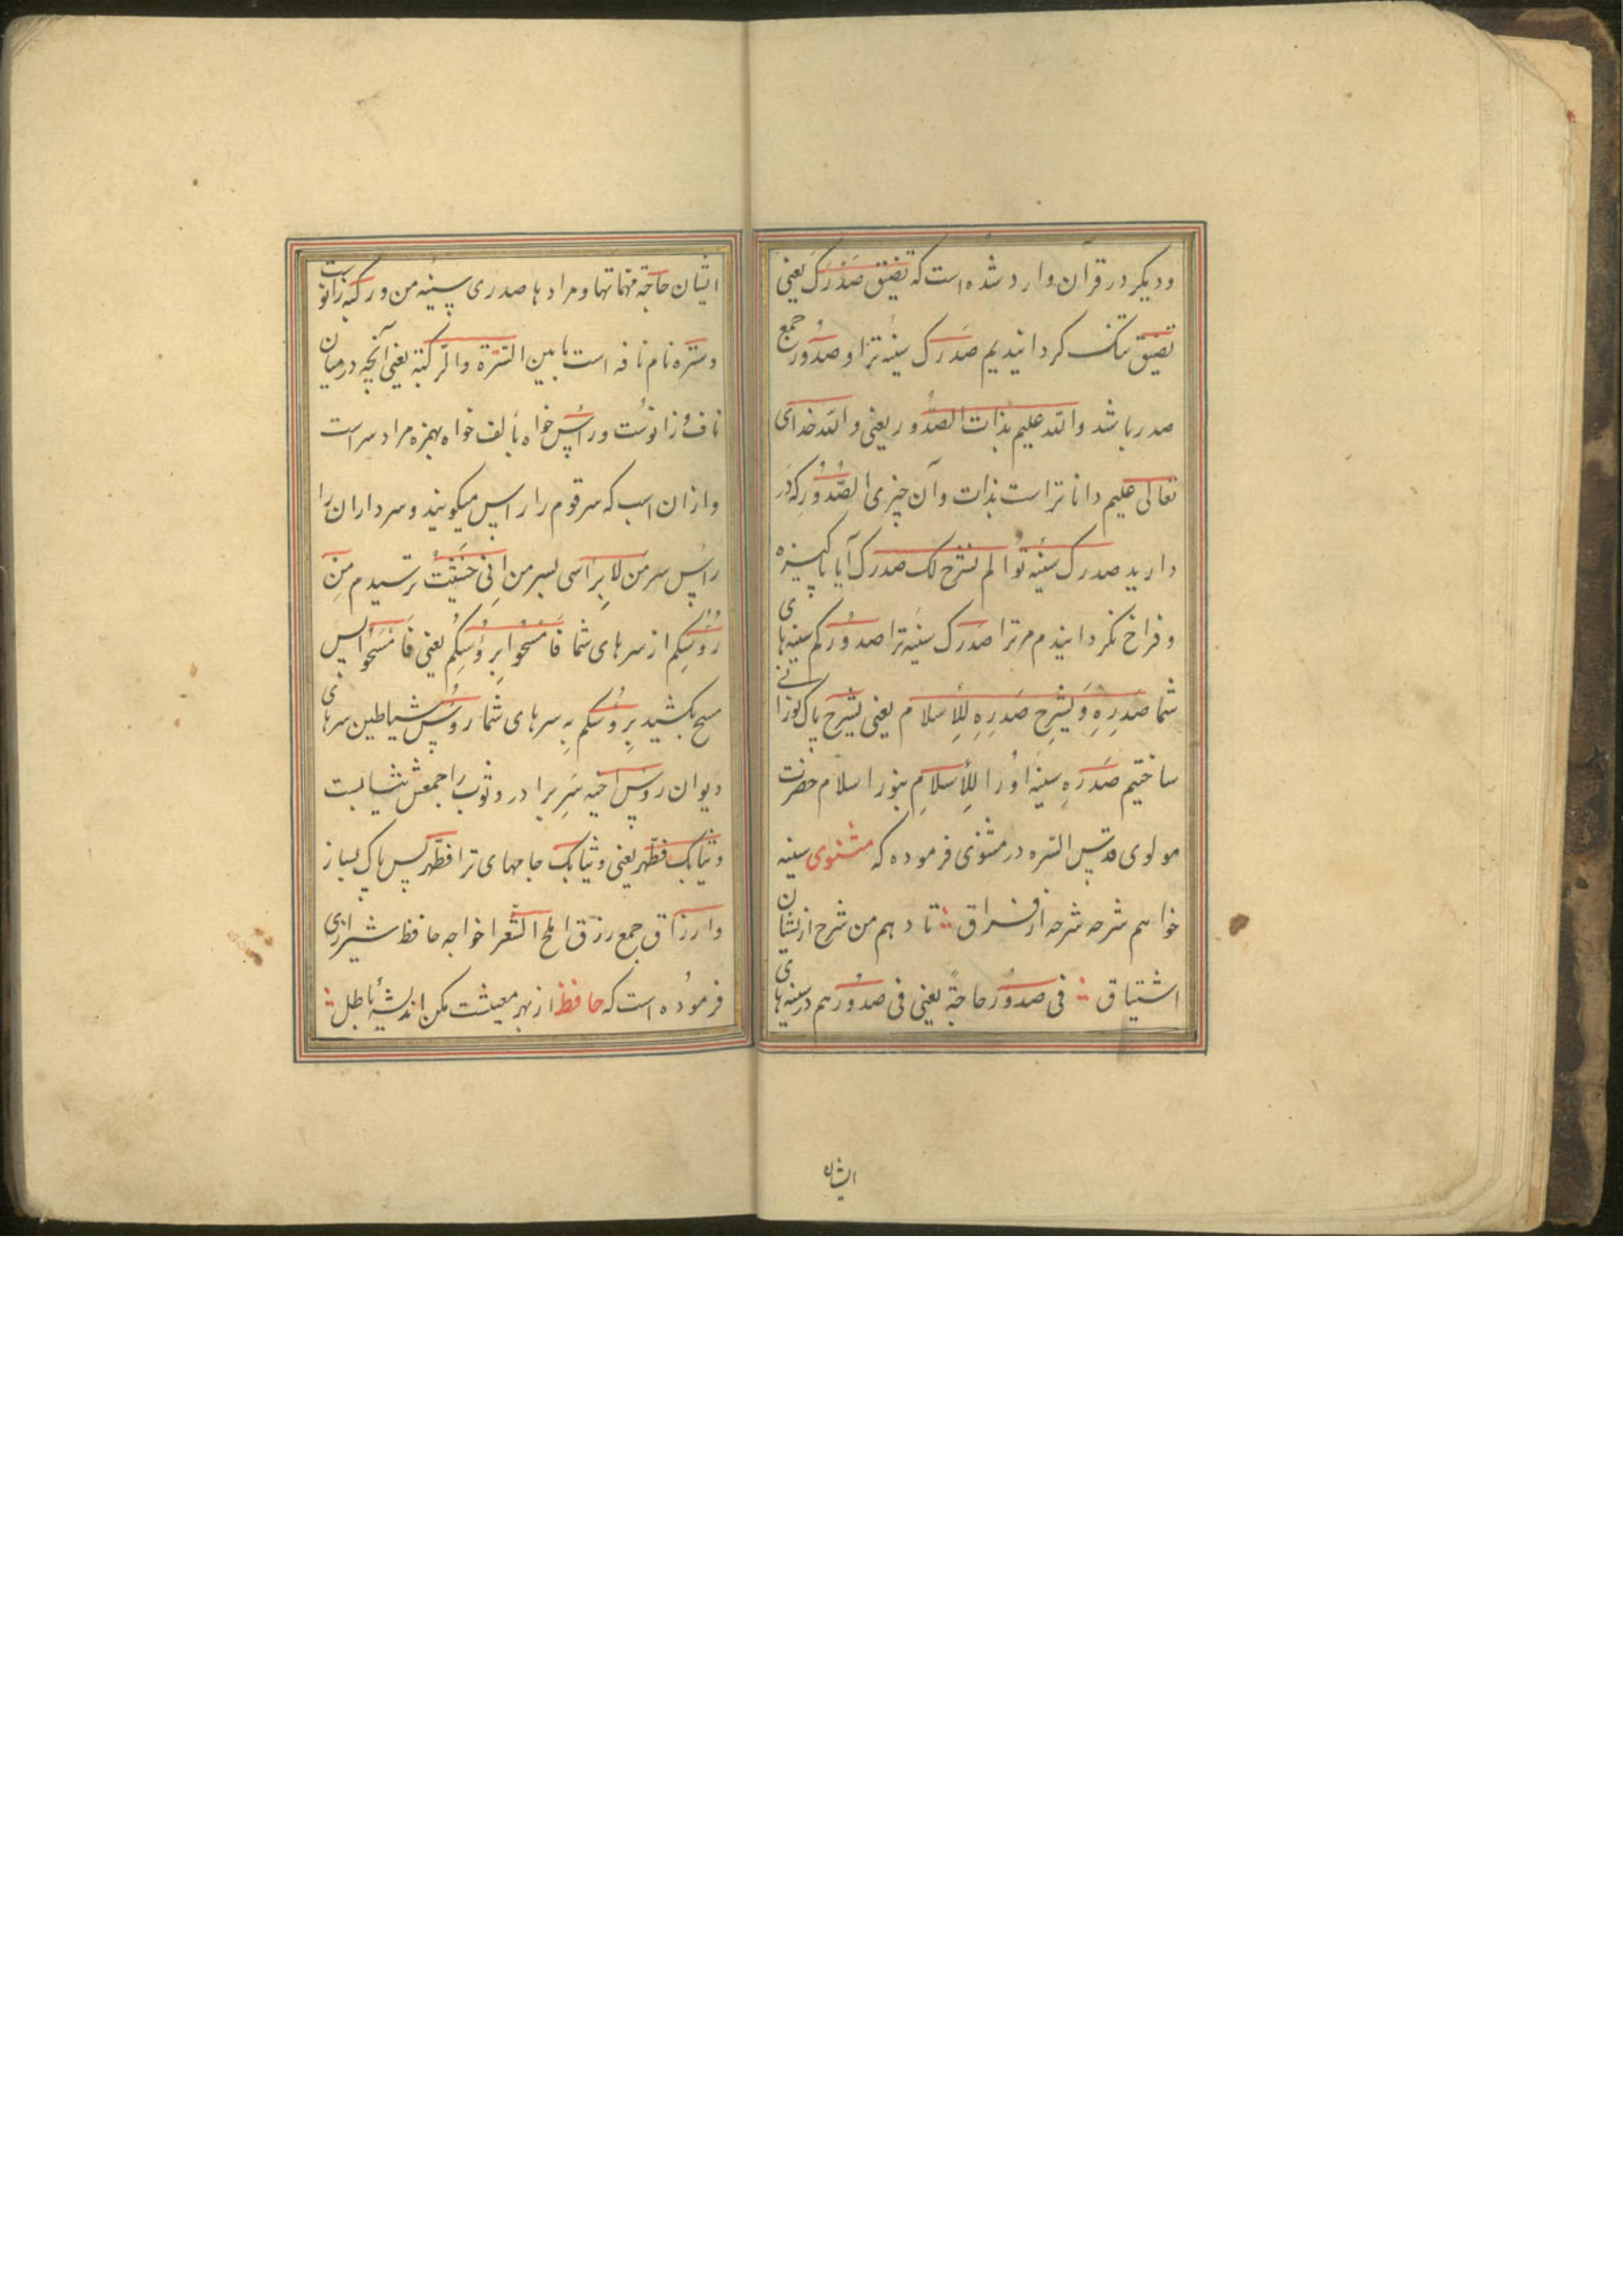 ودیکر در قرآن وارد شده است که تضیق صدرک یعنی
تضیق تنک کردانیدیم صدرک سینه ترا و صدور جمع
صدر باشد والله علیم بذات الصدور یعنی والله خدای
تعالی علیم داناتر است بذات وآن چیزی الصدور که در
دارید صدرک سینه تو الم نشرح لک صدرک آیا پاکیزه
و فراخ نکردانیدم مر ترا صدرک سینه ترا صدورکم سینه‌های
شما صدره ویشرح صدره للأسلام یعنی یشرح پاک نورانی
ساختیم صدره سینه او را للأسلام بنور اسلام حضرت
مولوی قدس السره در مثنوی فرموده که مثنوی سینه
خواهم شرحه شرحه از فراق تا دهم من شرح از نشان
اشتیاق فی صدور حاجة یعنی فی صدورهم در سینه‌های
ایشان
ایشان حاجة مهماتها و مرادها صدری سینه من و رکبه زانوست
وسره نام نافه است ما بین السرة والرکبة یعنی آنچه در میان
ناف و زانوست و راس خواه بألف خواه بهمزه مراد سر است
وازان اسب که سر قوم را راس میکویند و سرداران را
راس سر من لا براسی بسر من انی خشیت ترسیدم من
رؤسکم از سرهای شما فامسحوا برؤسکم یعنی فامسحوا پس
مسح بکشید برؤسکم به سرهای شما رؤس شیاطین سرهای
دیوان رؤس اخیه سر برادر و ثوب را جمعش ثیابست
وثیابک فطهر یعنی وثیابک جامهای ترا فطهر پس پاک بساز
وارزاق جمع رزق املح الشعرا خواجه حافظ شیرازی
فرموده است که حافظ از بهر معیشت مکن اندیشهٔ باطل